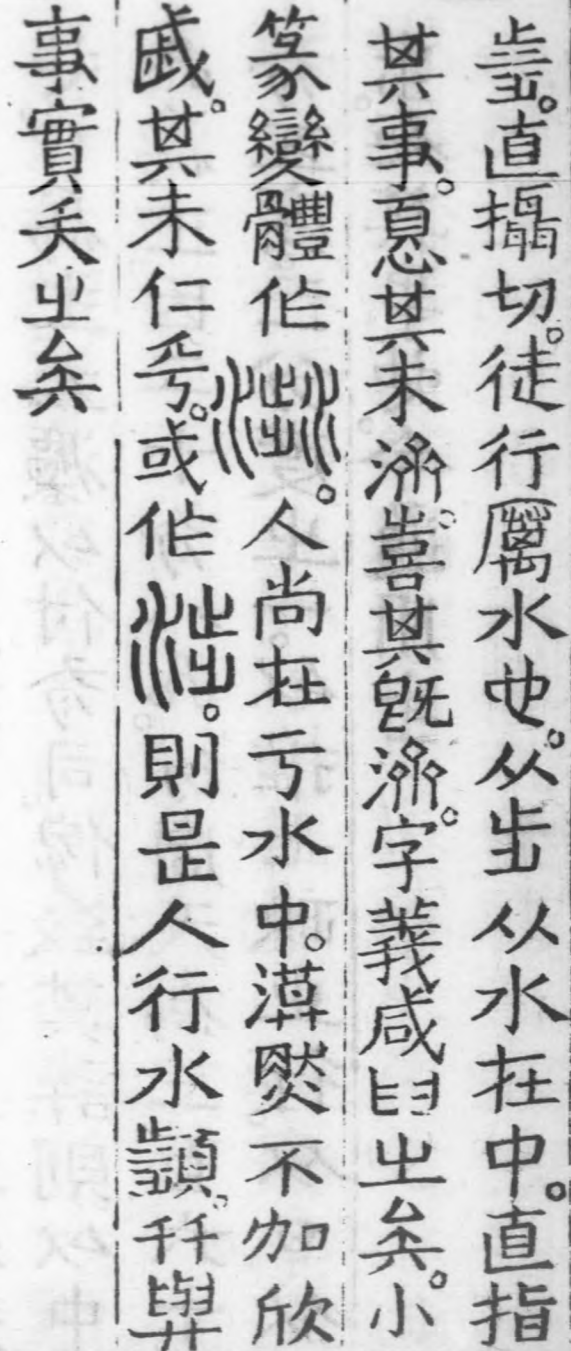 直攝切。徒行厲水也。从步从水在中。直指
其事。𢝊其未濟。喜其旣濟。字義咸𦥑㞢矣。小
篆變體作。人尚在亏水中。漠然不加欣
戚。其未仁乎。或作。則是人行水與
事實失㞢矣